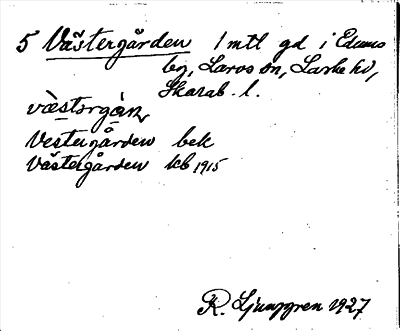 5 Västergården 1 mtl gd i Edums
by, Larvs sn, Laske hd,
Skarab. l.
væ̀stərgàn,
Vestergården bek
Västergården kb 1915
R. Ljunggren 1927